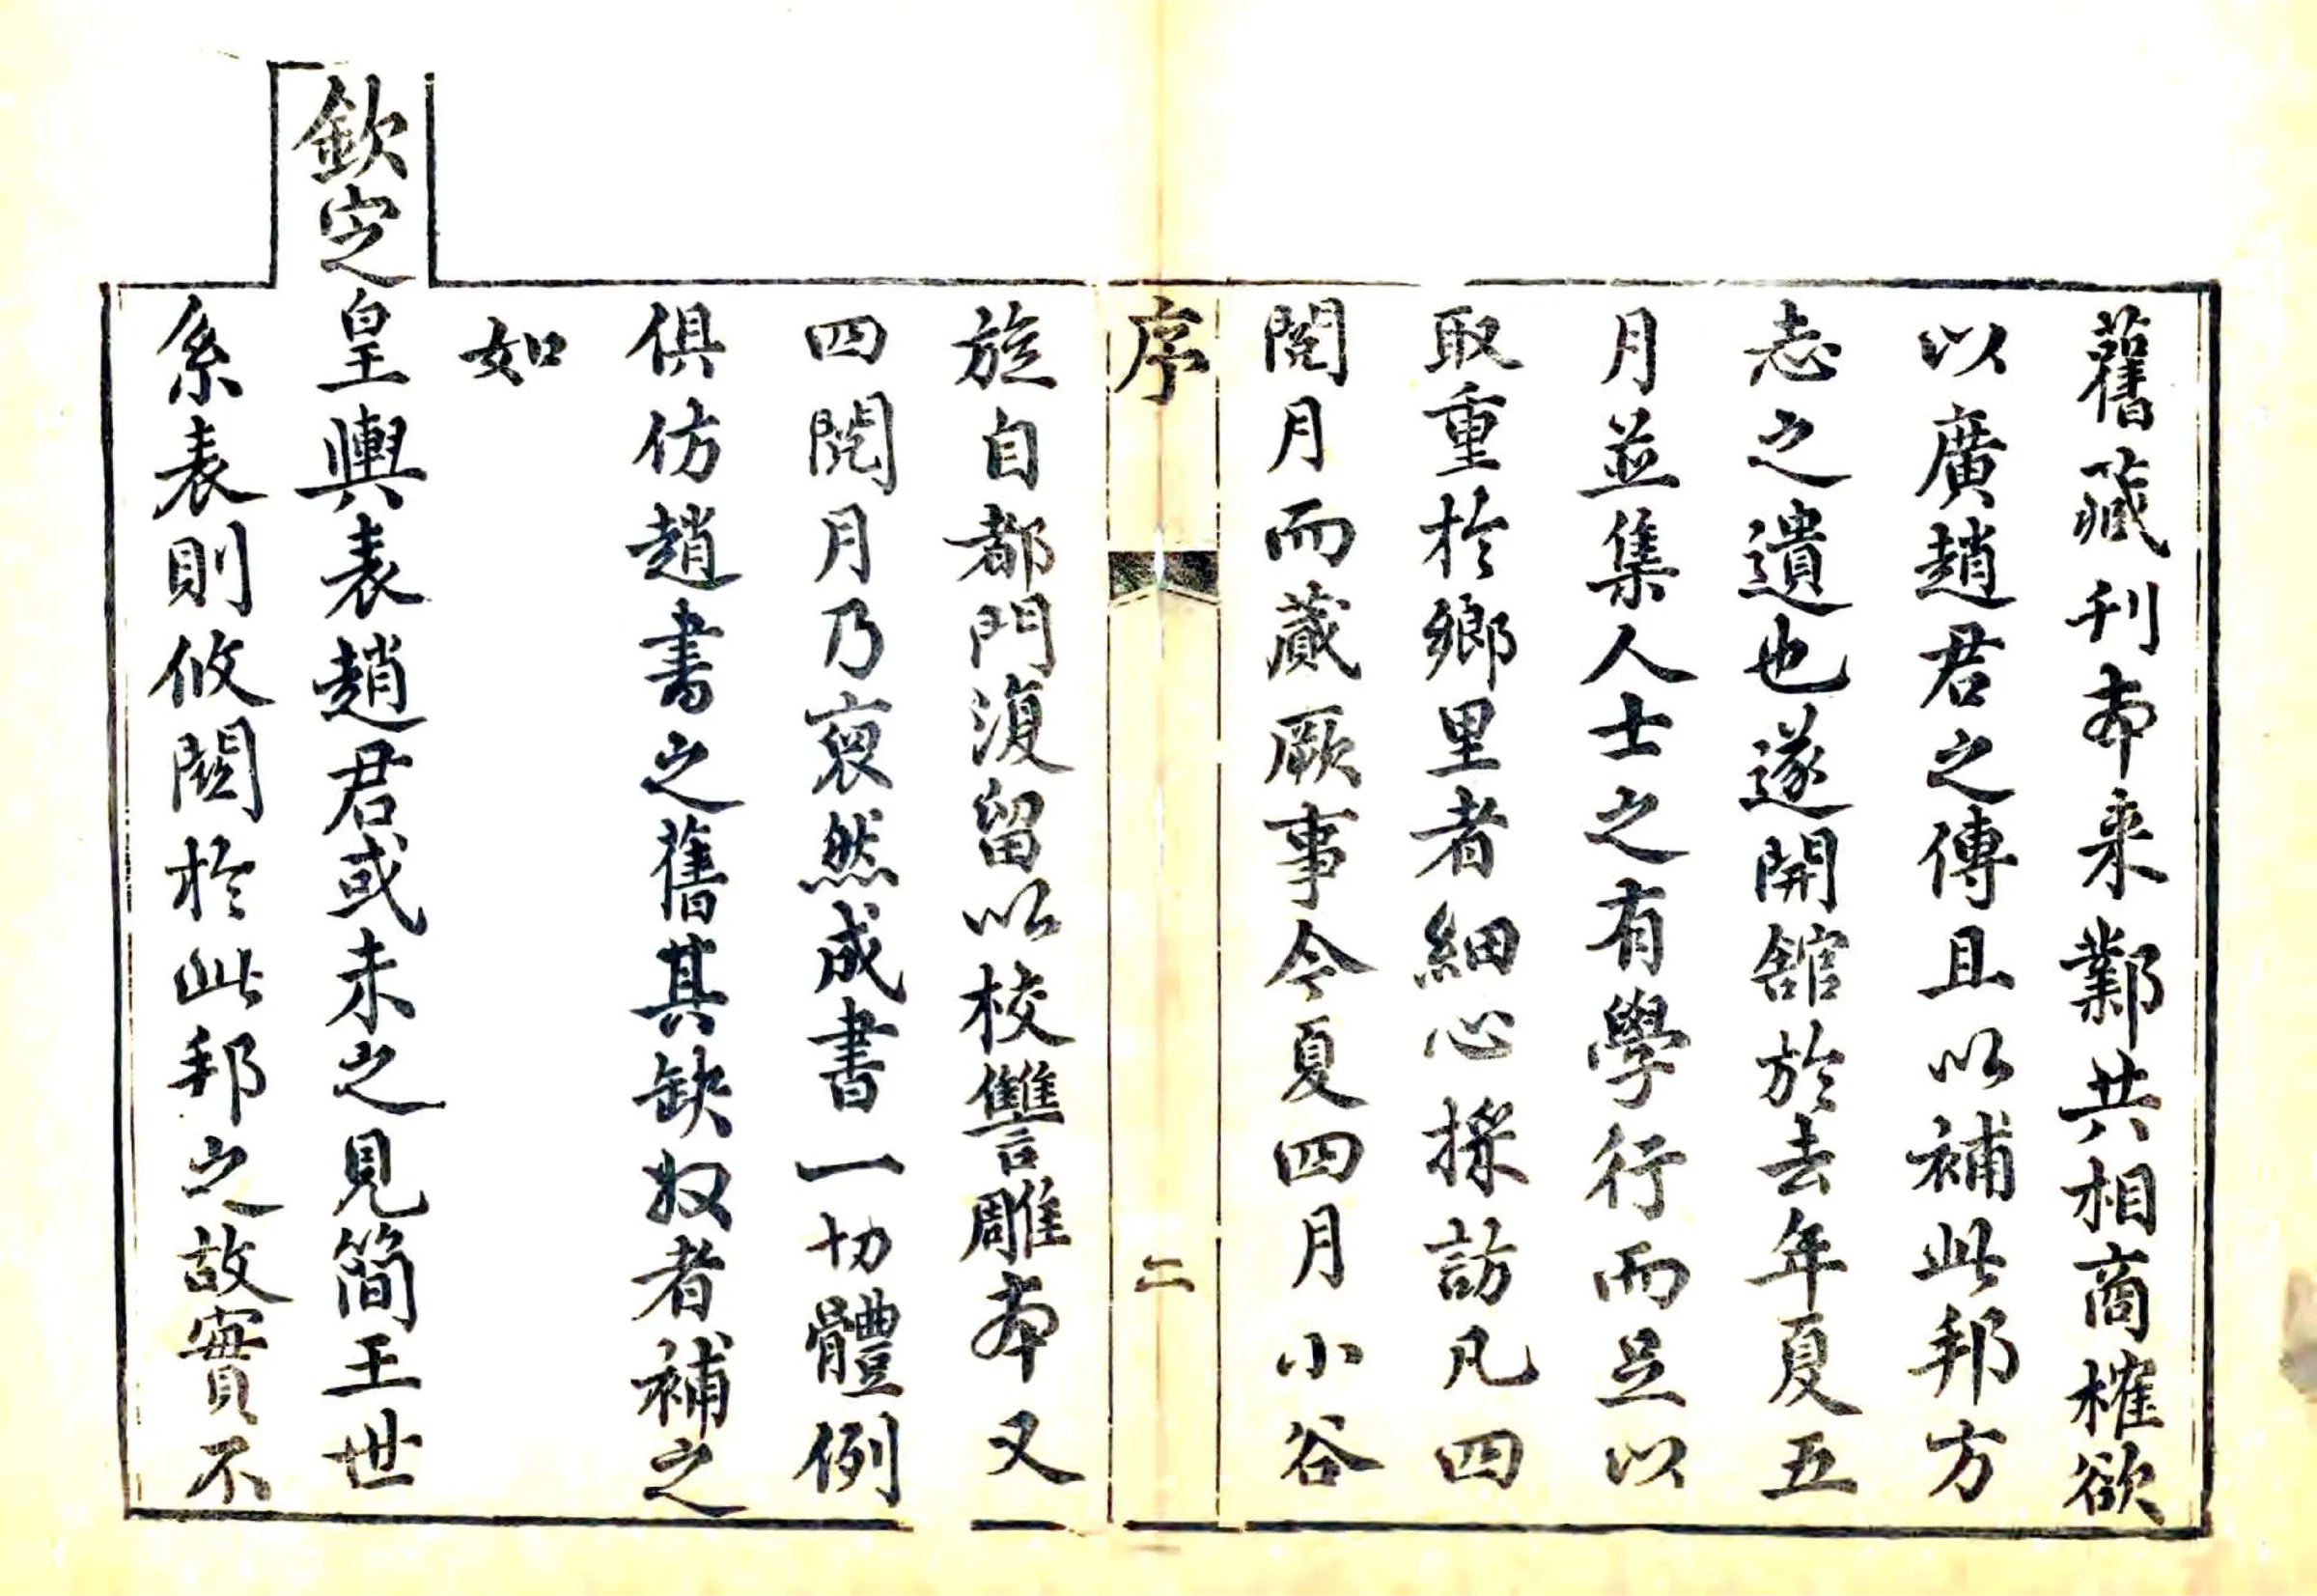 舊藏刊本来鄴共相商榷欲
以廣趙君之傳且以補此邦方
志之遺也遂開舘於去年夏五
月並集人士之有學行而足以
取重於鄉里者細心採訪凡四
閱月而蕆厥事今夏四月小谷
序
二
旋自都門復留以校讐雕本又
四閱月乃裒然成書一切體例
俱仿趙書之舊其缺奴者補之
如
欽定皇輿表趙君或未之見簡王世
系表則攸關於此邦之故實不